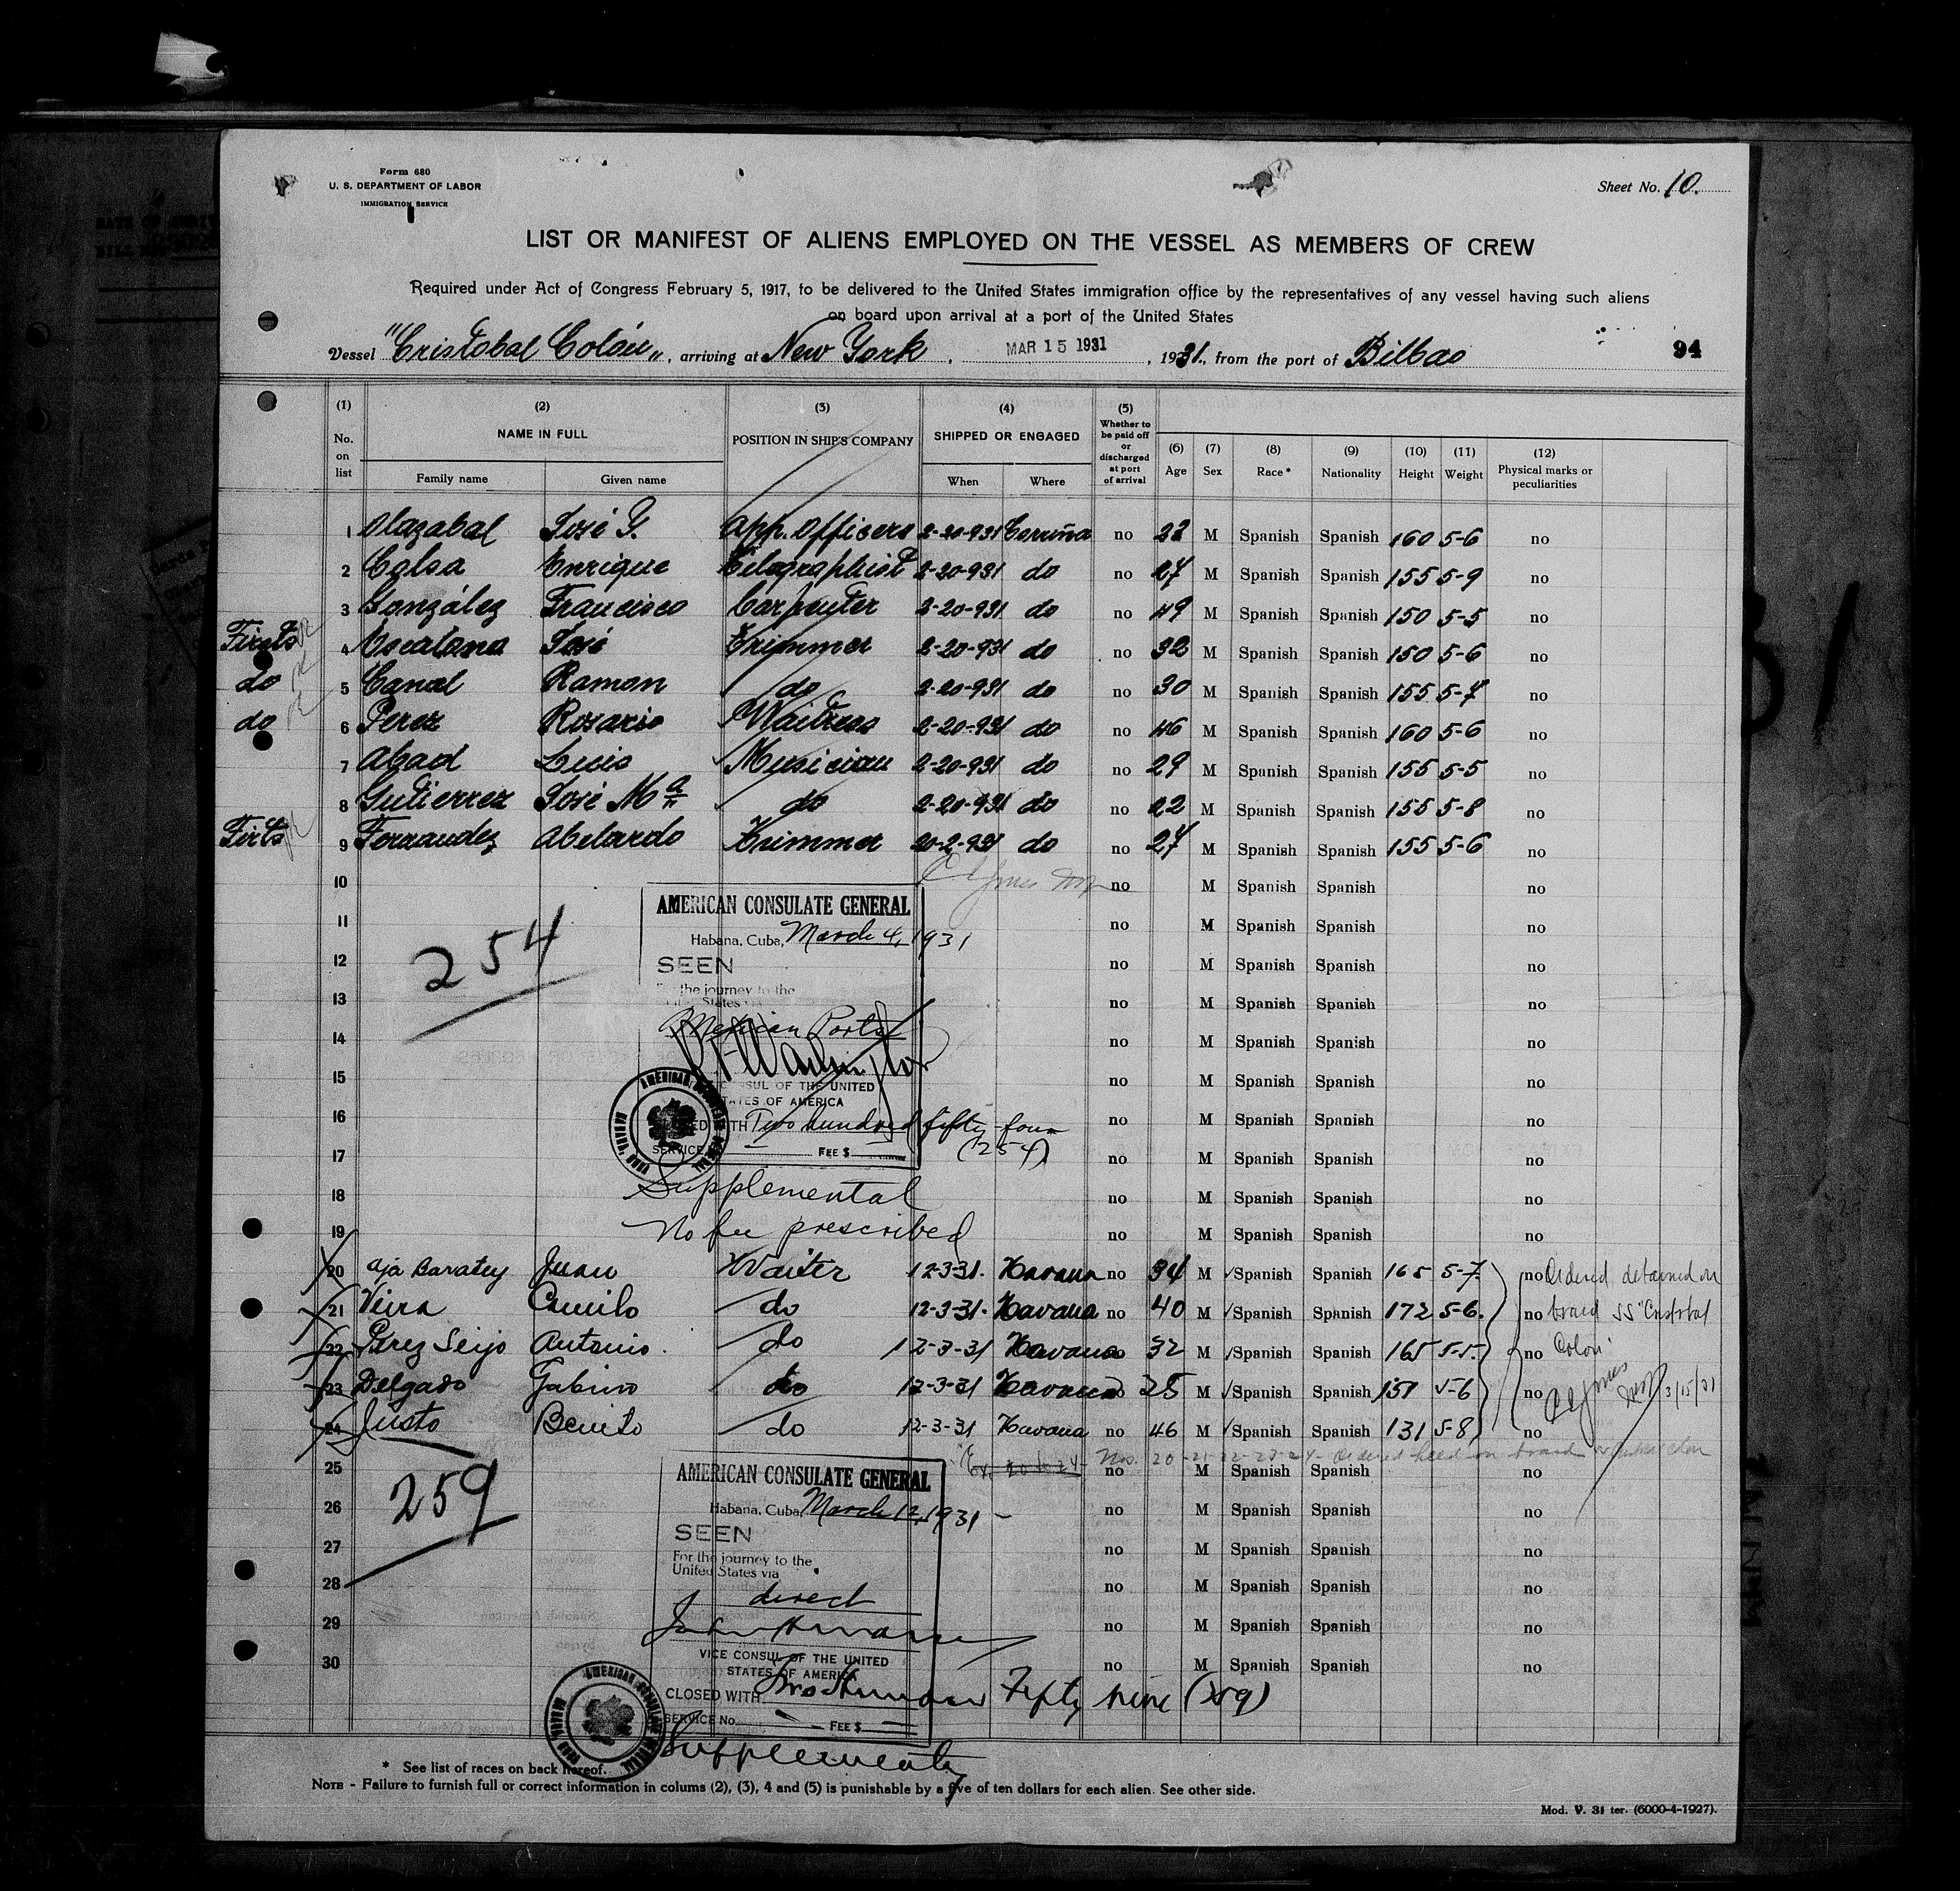 Form 680
U. S. DEPARTMENT OF LABOR
IMMIGRATION SERVICE
Sheet No. 10.
LIST OR MANIFEST OF ALIENS EMPLOYED ON THE VESSEL AS MEMBERS OF CREW
Required under Act of Congress February 5, 1917, to be delivered to the United States immigration office by the representatives of any vessel having such aliens
on board upon arrival at a port of the United States
Vessel "Cristobal Colón", arriving at New York, MAR 15 1931, 1931., from the port of Bilbao 94
(1) (2) (3) (4) (5)
No. on list NAME IN FULL POSITION IN SHIP'S COMPANY SHIPPED OR ENGAGED Whether to be paid off or discharged at port of arrival (6) Age (7) Sex (8) Race * (9) Nationality (10) Height (11) Weight (12) Physical marks or peculiarities
Family name Given name When Where
1 Olazabal José G. App. Officers 2-20-931 Coruña no 22 M Spanish Spanish 160 5-6 no
2 Calsa Enrique Telegraphist 2-20-931 do no 27 M Spanish Spanish 155 5-9 no
3 González Francisco Carpenter 2-20-931 do no 49 M Spanish Spanish 150 5-5 no
Firsts 4 Escalona José Trimmer 2-20-931 do no 32 M Spanish Spanish 150 5-6 no
do 5 Canal Ramon do 2-20-931 do no 30 M Spanish Spanish 155 5-7 no
do 6 Perez Rosario Waitress 2-20-931 do no 46 M Spanish Spanish 160 5-6 no
7 Abad Luis Musician 2-20-931 do no 29 M Spanish Spanish 155 5-5 no
8 Gutierrez José Mª do 2-20-931 do no 22 M Spanish Spanish 155 5-8 no
Firts 9 Fernandez Abelardo Trimmer 20-2-931 do no 27 M Spanish Spanish 155 5-6 no
10 no M Spanish Spanish no
AMERICAN CONSULATE GENERAL
11 no M Spanish Spanish no
254
Habana, Cuba, March 4, 1931
12 SEEN no M Spanish Spanish no
For the journey to the
13 United States via no M Spanish Spanish no
Mexican Ports
14 no M Spanish Spanish no
15 no M Spanish Spanish no
CONSUL OF THE UNITED
STATES OF AMERICA
16 no M Spanish Spanish no
CLOSED WITH Two hundred fifty-four
(254)
SERVICE FEE $
17 no M Spanish Spanish no
18 Supplemental no M Spanish Spanish no
19 No fee prescribed no M Spanish Spanish no
20 Aja Baratey Juan Waiter 12-3-31. Havana no 34 M Spanish Spanish 165 5-7. no Ordered detained on
21 Viera Camilo do 12-3-31. Havana no 40 M Spanish Spanish 172 5-6. no board SS "Cristobal
22 Perez Seijo Antonio. do 12-3-31 Havana no 32 M Spanish Spanish 165 5-5. no Colon"
23 Delgado Gabino do 12-3-31 Havana no 25 M Spanish Spanish 151 5-6 no 3/15/31
24 Justo Benito do 12-3-31 Havana no 46 M Spanish Spanish 131 5-8 no
Nos. 20-21-22-23-24- Ordered held on board
25 no M Spanish Spanish no
AMERICAN CONSULATE GENERAL
259
26 Habana, Cuba, March 12, 1931 no M Spanish Spanish no
SEEN
27 For the journey to the no M Spanish Spanish no
United States via
28 direct no M Spanish Spanish no
29 no M Spanish Spanish no
VICE CONSUL OF THE UNITED
STATES OF AMERICA
30 no M Spanish Spanish no
CLOSED WITH Two Hundred Fifty nine (259)
SERVICE No. FEE $
Supplementary
* See list of races on back hereof.
NOTE - Failure to furnish full or correct information in colums (2), (3), 4 and (5) is punishable by a five of ten dollars for each alien. See other side.
Mod. V. 31 ter. (6000-4-1927).